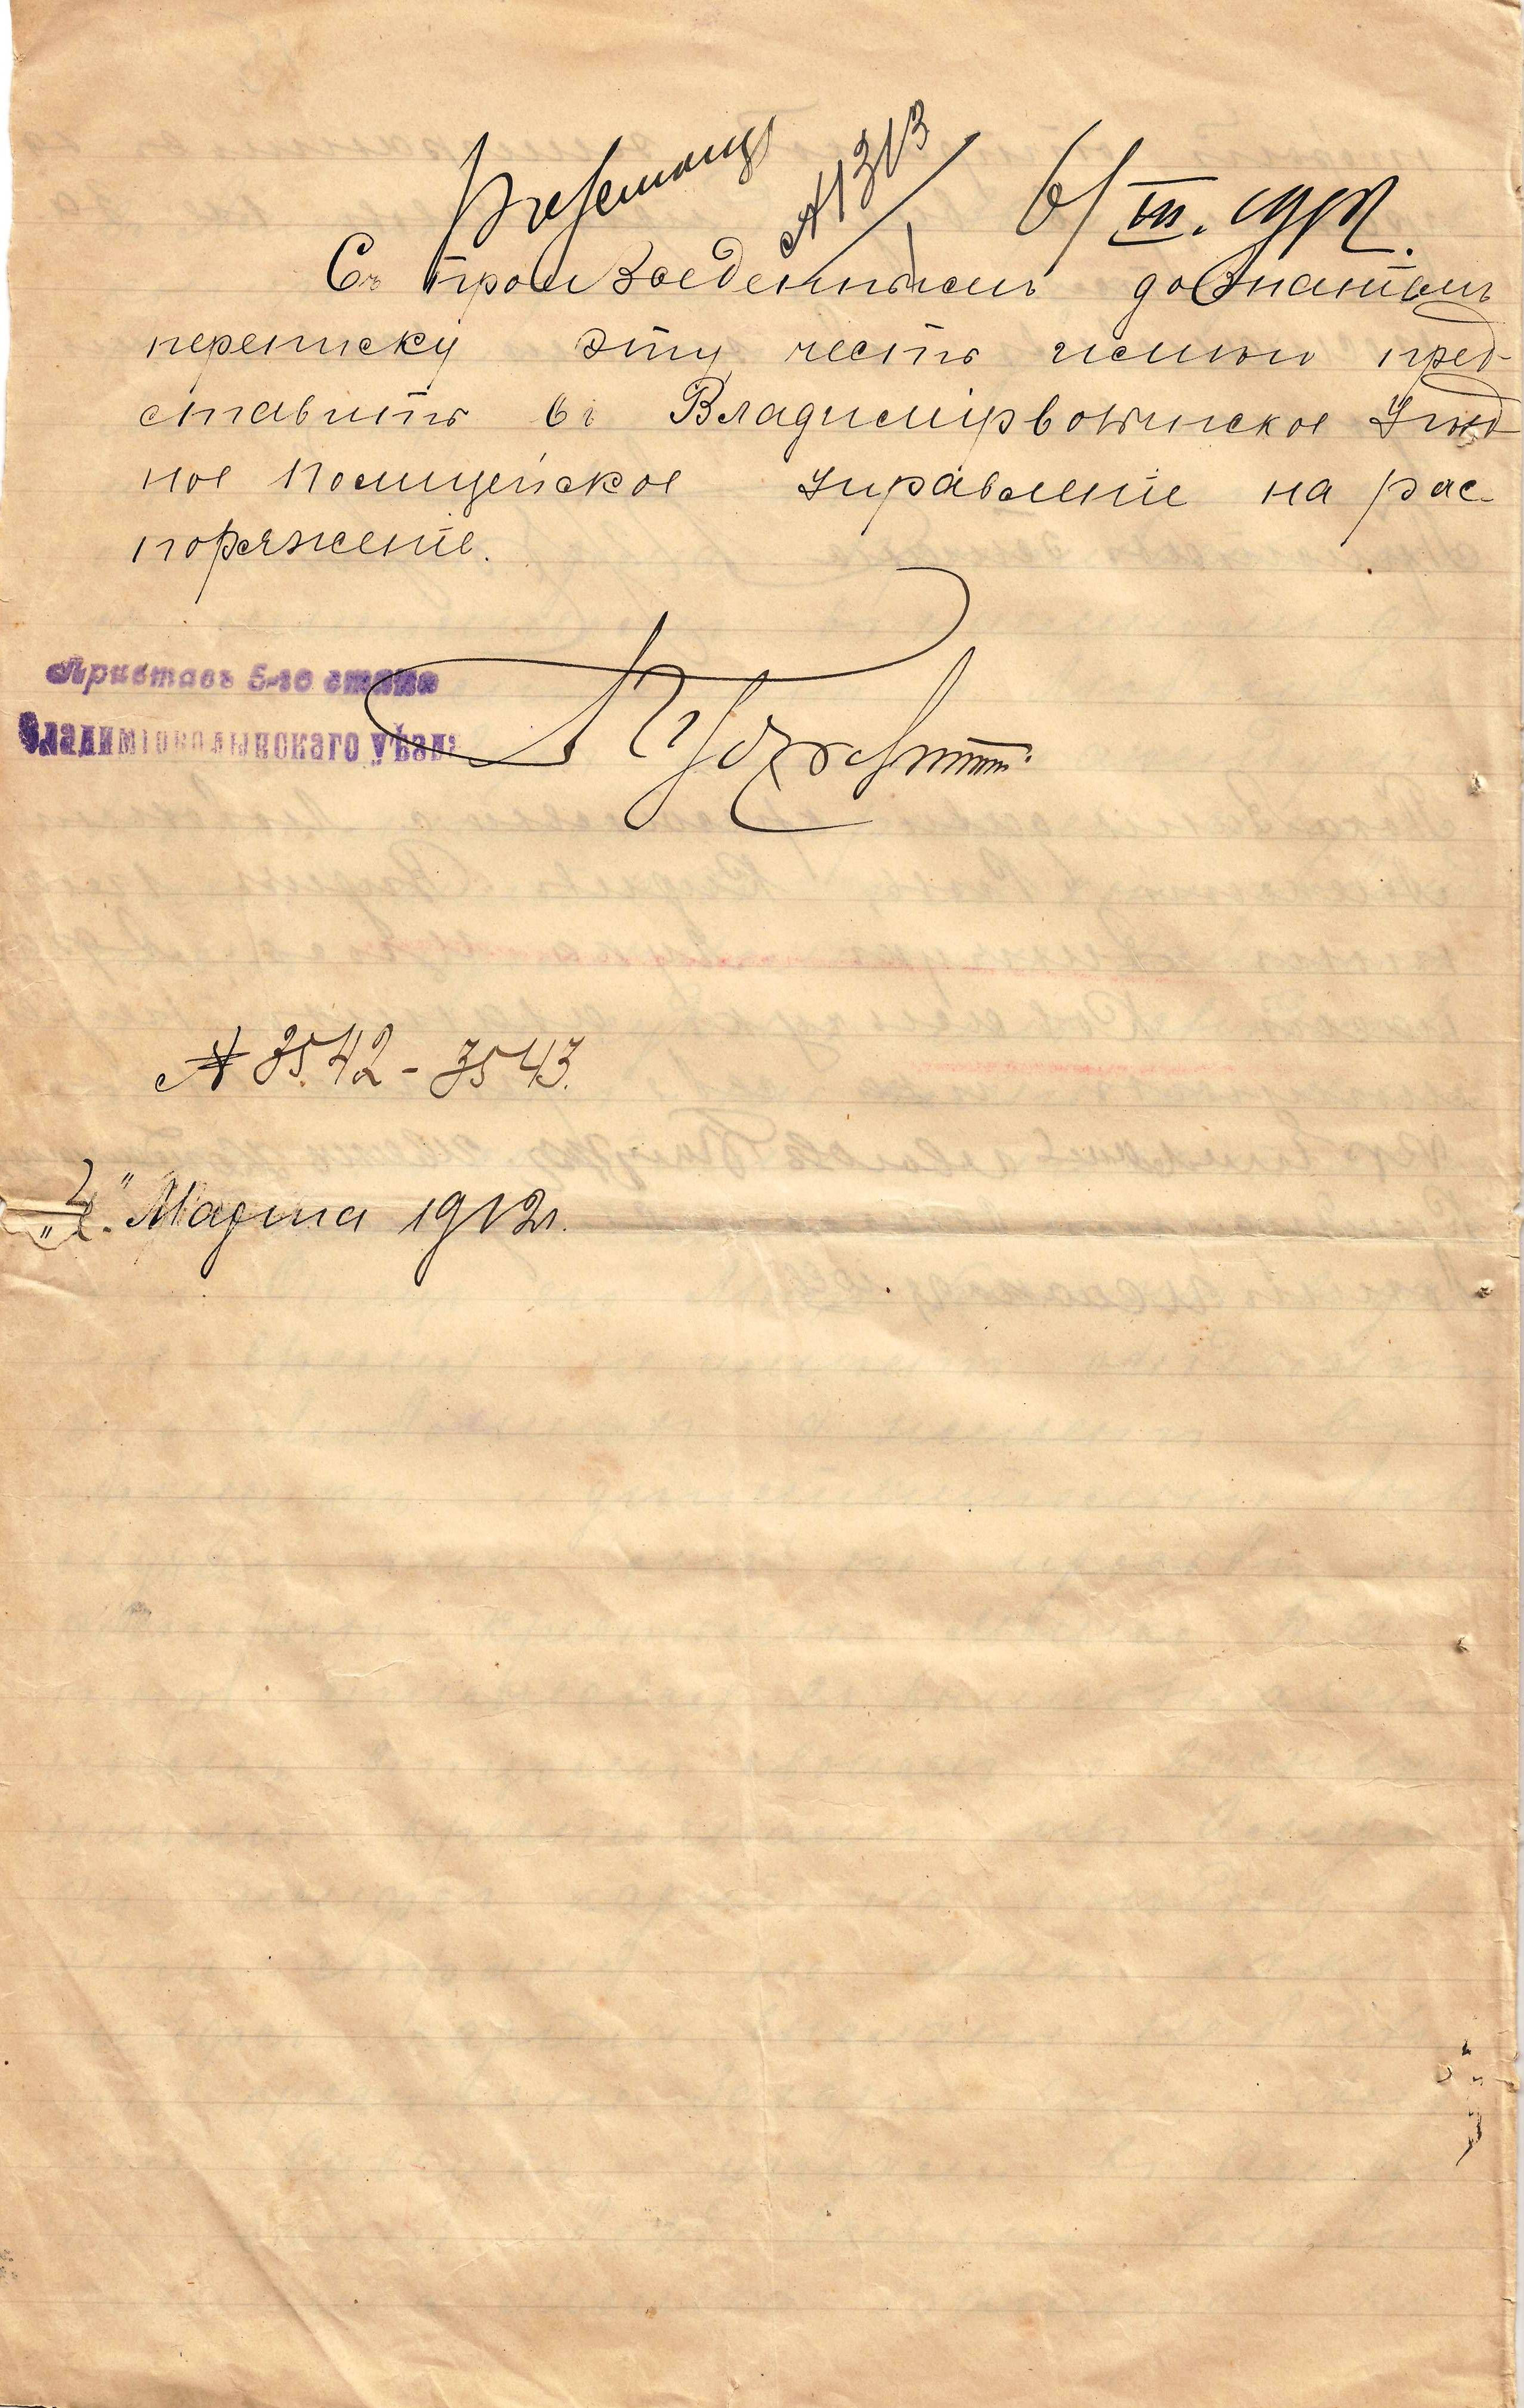 № 1313
6/III. 1912.
Съ произведеннымъ дознаніемъ
переписку эту честь имѣю пред-
ставить въ Владимірволынское Уѣзд
ное Полицейское Управленіе на рас-
поряженіе.
Приставъ 5-го стана
Владиміроволынскаго уѣзда
№ 3542-3543.
Марта 1912г.